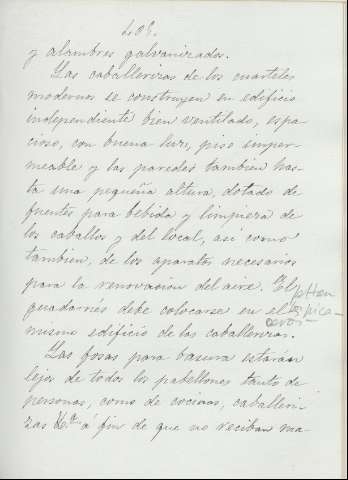 208.
y alambres galvanizados.
Las caballerizas de los cuarteles
modernos se construyen en edificio
independiente bien ventilado, espa-
cioso, con buena luz, piso imper-
meable y las paredes tambien has-
ta una pequeña altura, dotado de
fuentes para bebida y limpieza de
los caballos y del local, así como
tambien, de los aparatos necesarios
para la renovacion del aire. El
guadarnés debe colocarse en el
mismo edificio de las caballerizas.
Las fosas para basura estaran
lejos de todos los pabellones tanto de
personas, como de cocinas, caballeri-
zas &a. á fin de que no reciban ma-